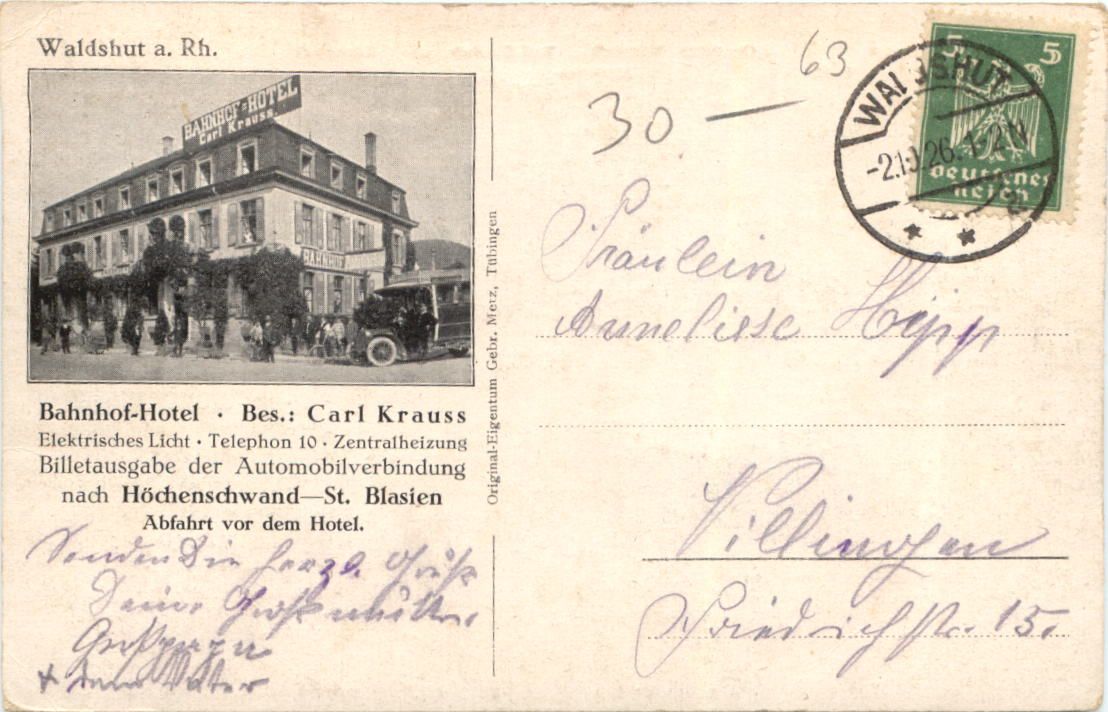 Waldshut a. Rh.
BAHNHOF=HOTEL
Carl Krauss
BAHNHOF
Bahnhof-Hotel · Bes.: Carl Krauss
Elektrisches Licht · Telephon 10 · Zentralheizung
Billetausgabe der Automobilverbindung
nach Höchenschwand—St. Blasien
Abfahrt vor dem Hotel.
Senden Die herzl. Grüße
Deine Großmutter
Großpapa
+ dein Vater
Original-Eigentum Gebr. Metz, Tübingen
63
30 —
WALDSHUT
-2.10.26.1-2N
* 2 *
5 5
Deutsches
Reich
Fräulein
Anneliese Hipp
Villingen
Friedrichstr. 15.